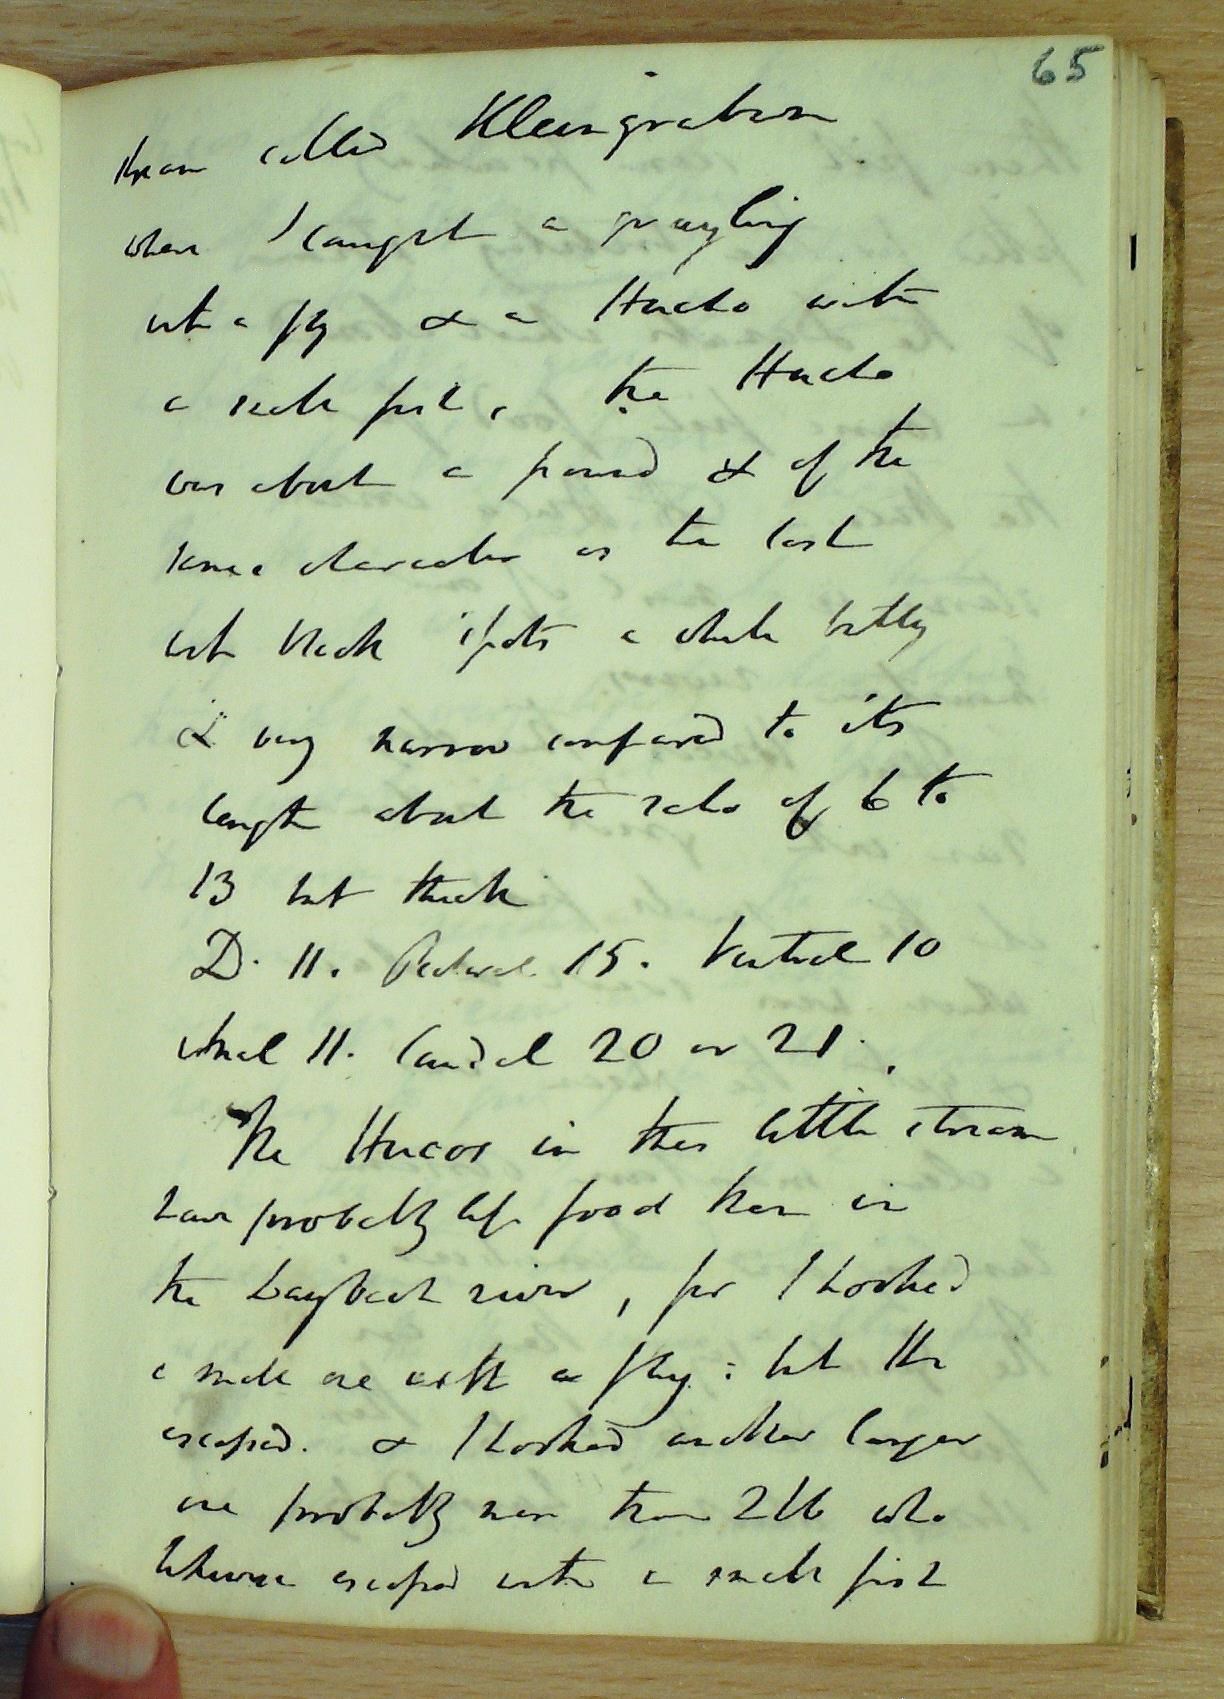 65
stream called Kleingraben
where I caught a grayling
with a fly & a Hucho with
a small fish, the Hucho
was about a pound & of the
same character as the last
with black spots a white belly
& very narrow compared to its
length about the ratio of 6 to
13 but thick
D. 11. Pectoral 15. Ventral 10
Anal 11. Caudal 20 or 21.
The Hucos in this little stream
have probably less food than in
the Laybach river, for I hooked
a small one with a fly: but he
escaped. & I hooked another larger
one probably more than 2lb who
likewise escaped with a small fish